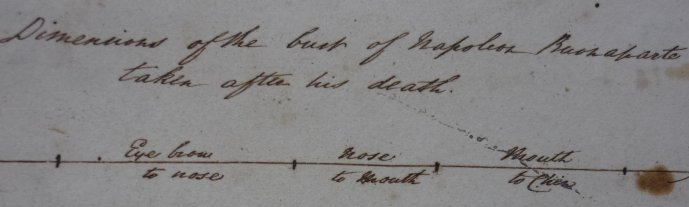 Dimensions of the bust of Napoleon Buonaparte
taken after his death.
Eye brow nose Mouth
to nose to Mouth to Chin